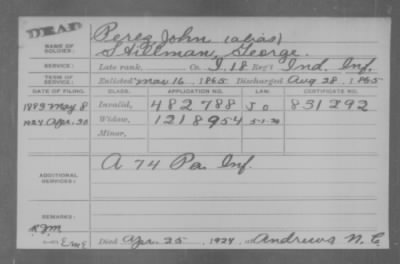 DEAD
Perez, John (alias)
NAME OF SOLDIER: Stillman, George.
SERVICE: Late rank, Co. I, 18 Reg't Ind. Inf.
TERM OF SERVICE: Enlisted May 16, 1865 Discharged Aug 28, 1865
DATE OF FILING. CLASS. APPLICATION NO. LAW. CERTIFICATE NO.
1883 May 8 Invalid, 482788 J O 831292
1924 Apr. 30 Widow, 1218954 5-1-20
Minor,
A 74 Pa. Inf.
ADDITIONAL SERVICES:
REMARKS:
Died Apr. 25, 1924, at Andrews N. C.